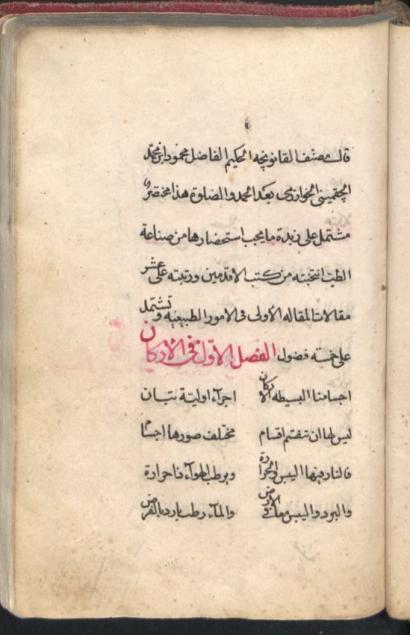 قال مصنف القانونچه الحكيم الفاضل محمود ابن محمد
الچغميني الخوارزمي بعد الحمد والصلوة هذا مختصر
مشتمل على زبدة ما يجب استحضارها من صناعة
الطب انتخبته من كتب الاقدمين ورتبته على عشر
مقالات المقاله الاولى فى الامور الطبيعيه وتشتمل
على خمسه فضول الفصل الاول فى الاركان
اجسامنا البسيطه الاركان اجزآء اولية
ليس لها ان تنقسم اقسام مختلف صورها اجساما
فالنار منها اليبس والحرارة وبرطب الهوآء ذا حرارة
والبرد واليبس معا فى الارض والمآء رطب بارد بالفرض